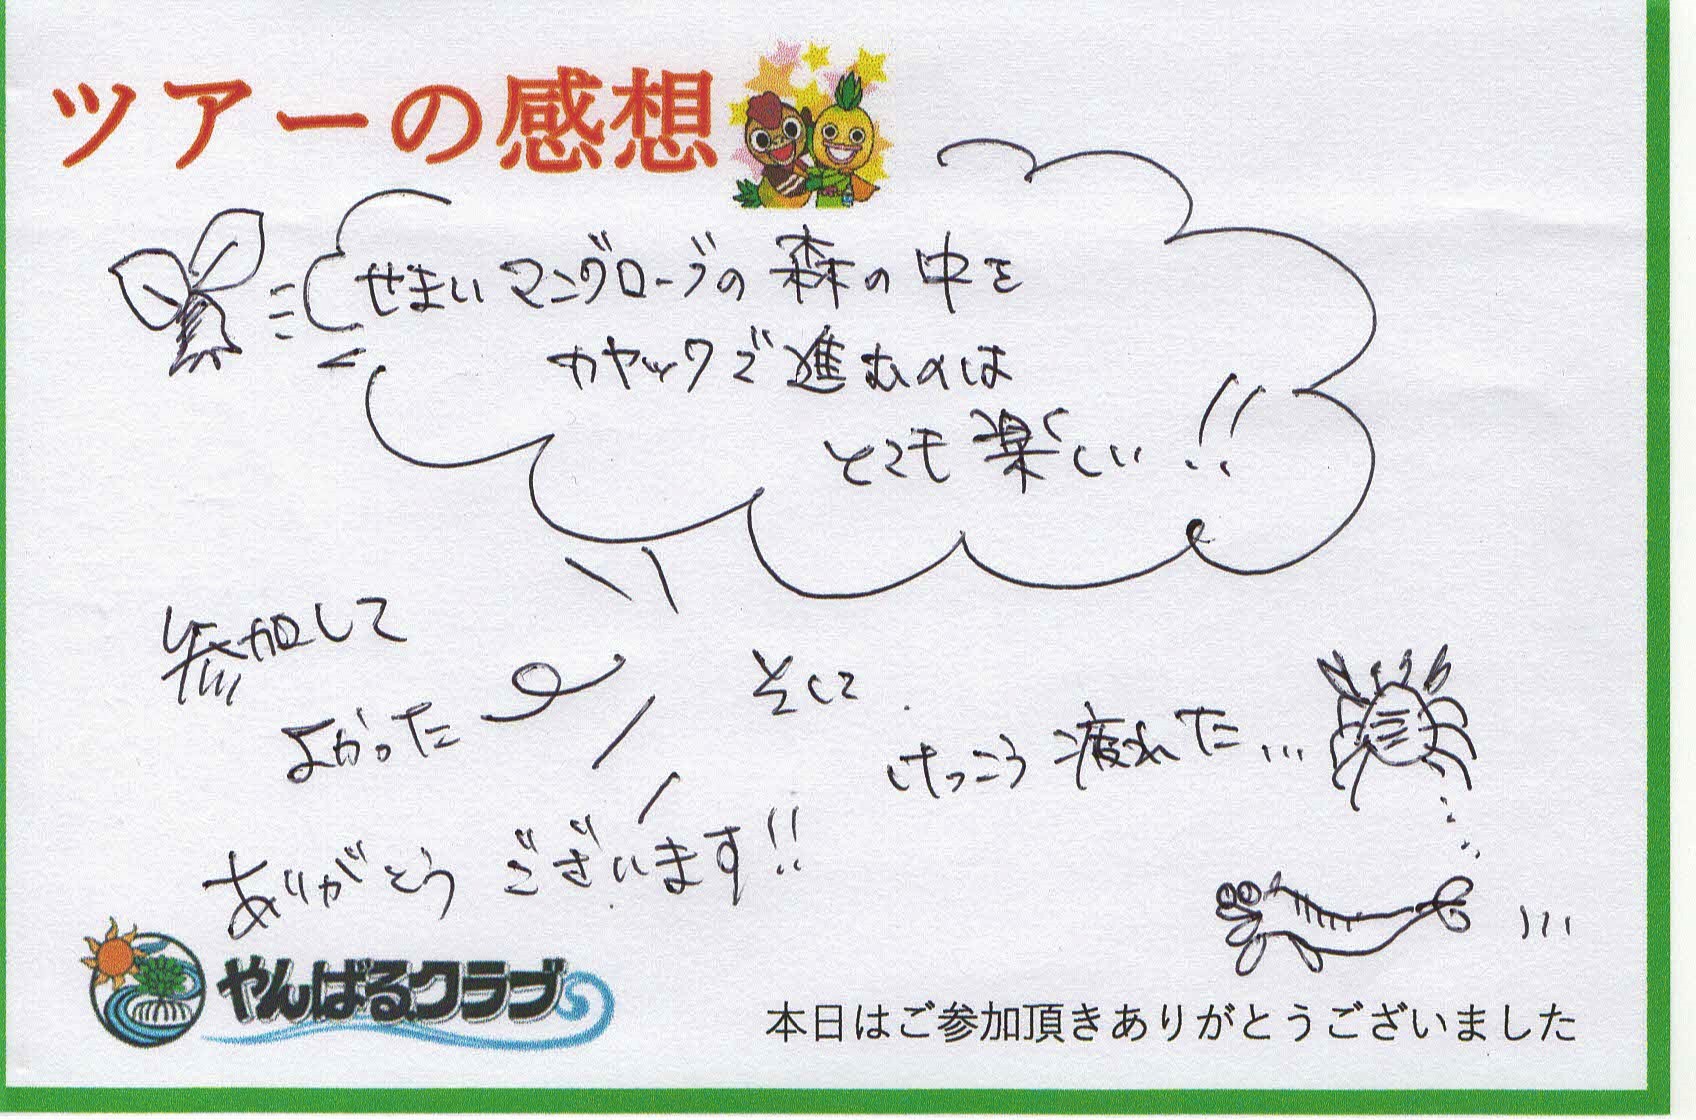 ツアーの感想
せまいマングローブの森の中を
カヤックで進むのは
とても楽しい!!
参加して
よかった
そして
けっこう疲れた...
ありがとうございます!!
やんばるクラブ
本日はご参加頂きありがとうございました